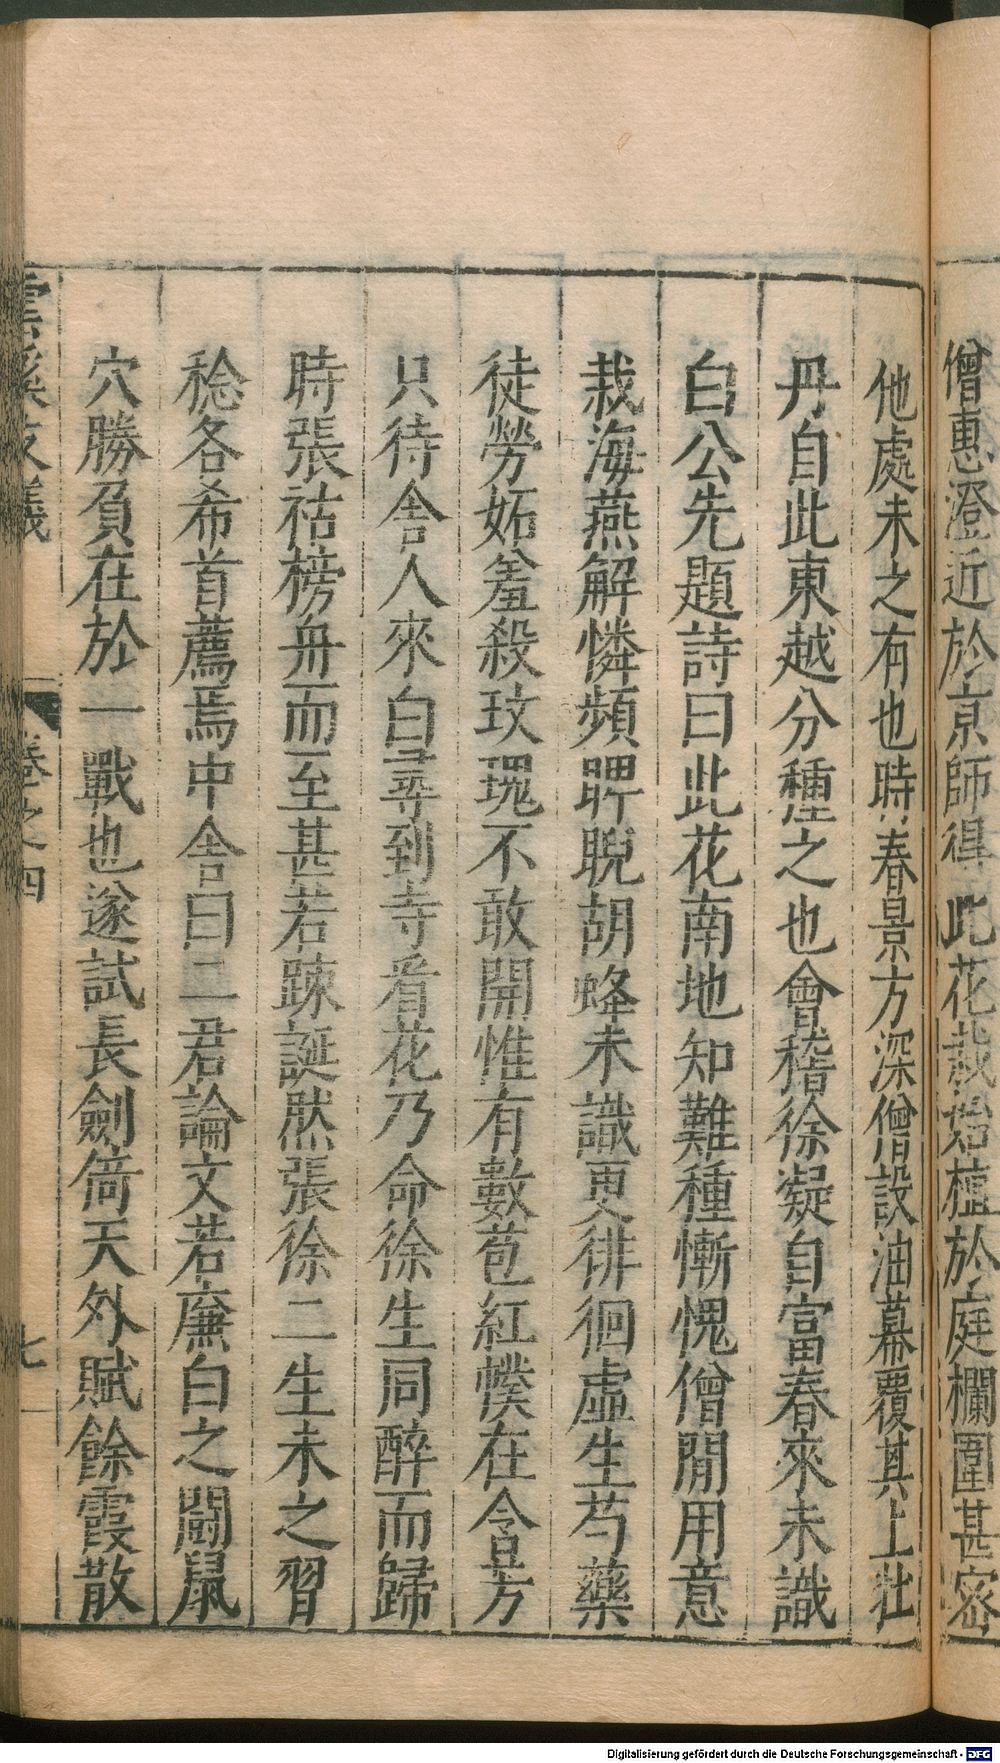 僧惠澄近於京師得此花栽始植於庭欄圍甚密
他處未之有也時春景方深僧設油幕覆其上牡
丹自此東越分種之也會稽徐凝自富春來未識
白公先題詩曰此花南地知難種慚愧僧閒用意
栽海燕解憐頻睥睨胡蜂未識更徘徊虛生芍藥
徒勞妬羞殺玫瑰不敢開惟有數苞紅幞在含芳
只待舍人來白尋到寺看花乃命徐生同醉而歸
時張祜榜舟而至甚若踈誕然張徐二生未之習
稔各希首薦焉中舍曰二君論文若廉白之鬬鼠
穴勝負在於一戰也遂試長劍倚天外賦餘霞散
雲溪友議 卷之四 七
Digitalisierung gefördert durch die Deutsche Forschungsgemeinschaft - DFG